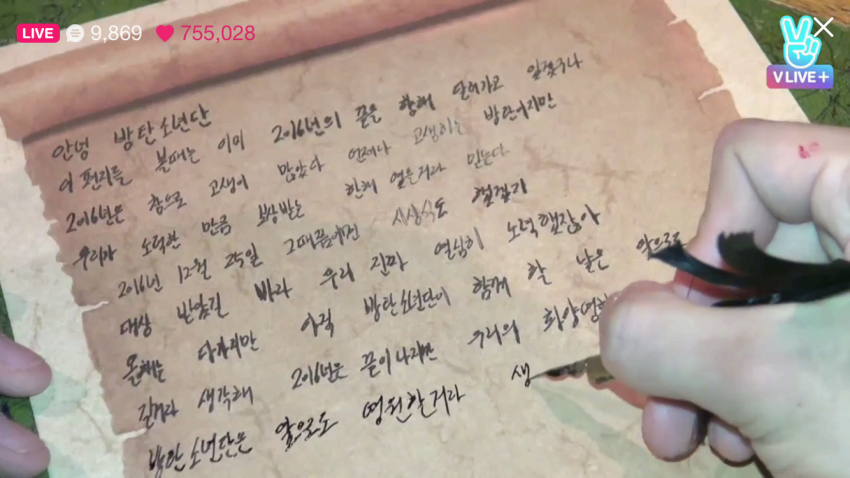 LIVE 9,869 755,028
V LIVE+
안녕 방탄소년단
이 편지를 볼때는 이미 2016년의 끝을 향해 달려가고 있겠구나
2016년은 참으로 고생이 많았다 언제나 고생하는 방탄이지만
우리가 노력한 만큼 보상받는 한해 였을거라 믿는다
2016년 12월 25일 그때쯤이면 시상식도 했겠지
대상 받았길 바라 우리 진짜 열심히 노력했잖아
올해는 다가지만 아직 방탄소년단이 함께 할 날은 앞으로도
길거라 생각해 2016년은 끝이나지만 우리의 화양연화
방탄소년단은 앞으로도 영원할거라 생